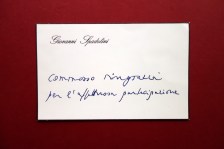 Giovanni Spadolini
commosso ringrazio
per l'affettuosa partecipazione